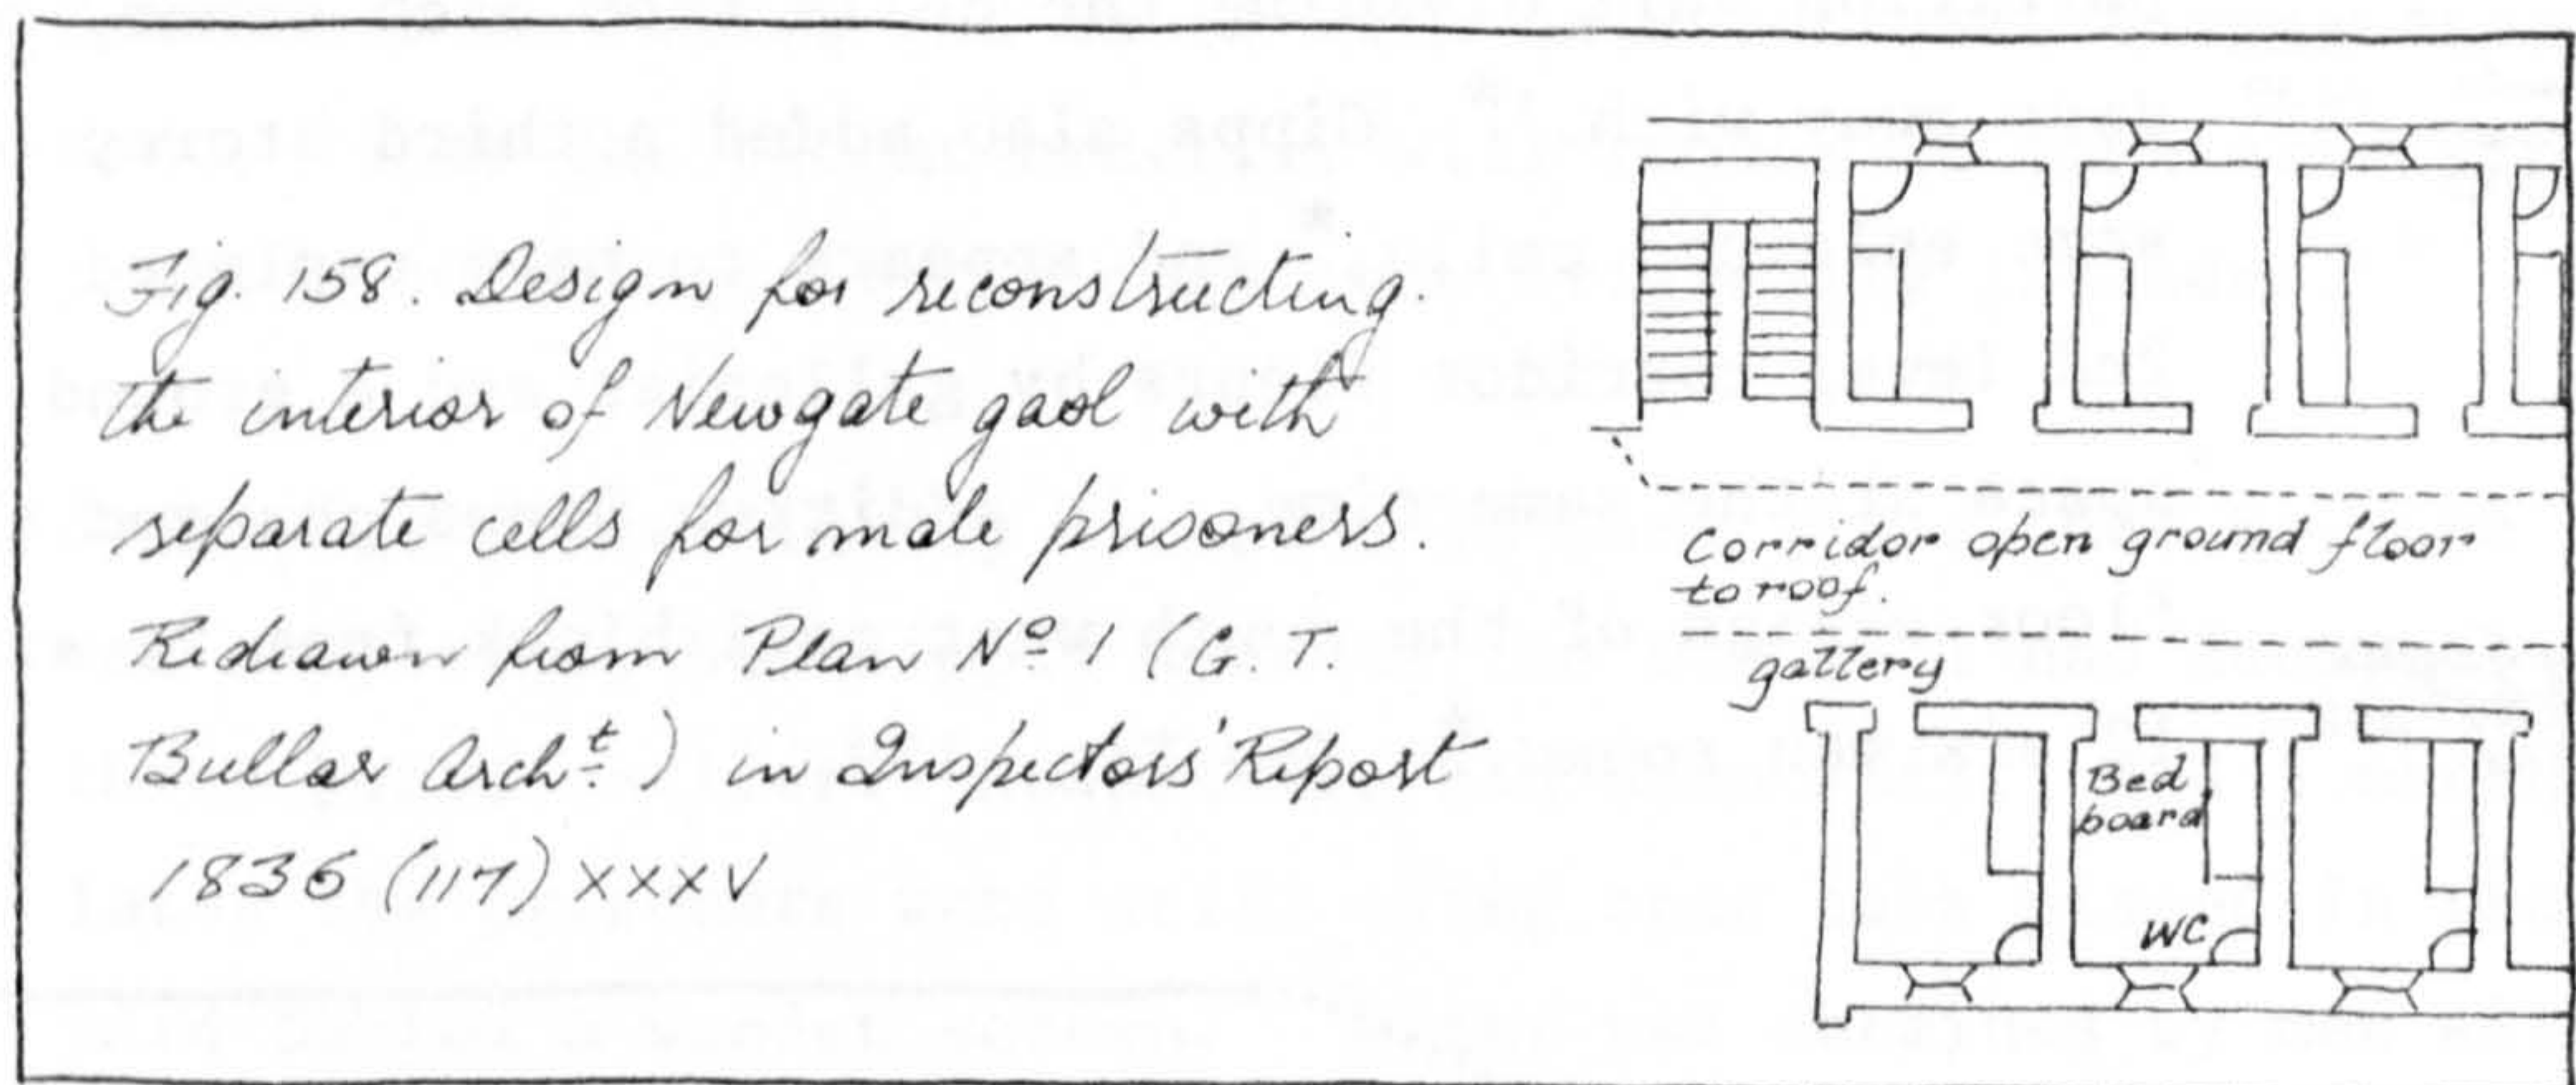 Fig. 158. Design for reconstructing.
the interior of Newgate gaol with
separate cells for male prisoners.
Redrawn from Plan Nº 1 (G. T.
Bullar Archᵗ.) in Inspectors' Report
1836 (117) XXXV
Corridor open ground floor
to roof.
gallery
Bed
board
WC